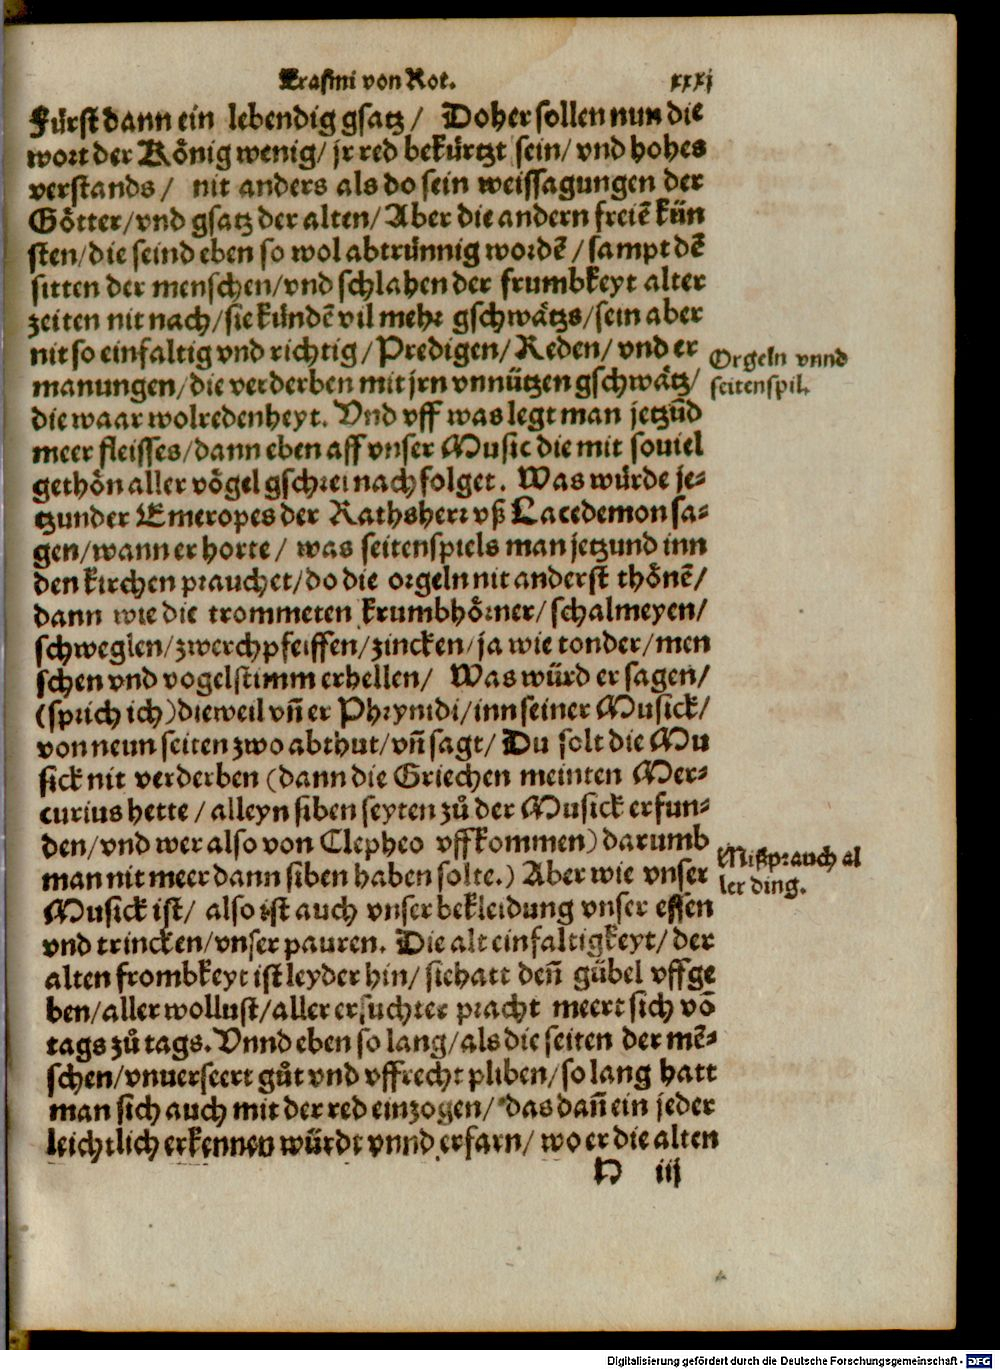 Erasmi von Rot. xxxj
Fürst dann ein lebendig gsatz / Doher sollen nun die
wort der König wenig / jr red bekürtzt sein / vnd hohes
verstands / nit anders als do sein weissagungen der
Götter / vnd gsatz der alten / Aber die andern freiē kün
sten / die seind eben so wol abtrünnig wordē / sampt dē
sitten der menschen / vnd schlahen der frumbkeyt alter
zeiten nit nach / sie kündē vil mehr gschwätzs / sein aber
nit so einfaltig vnd richtig / Predigen / Reden / vnd er
manungen / die verderben mit jrn vnnützen gschwätz /
Orgeln vnnd
seitenspil.
die waar wolredenheyt. Vnd vff was legt man jetzūd
meer fleisses / dann eben aff vnser Music die mit souiel
gethön aller vögel gschrei nachfolget. Was würde je-
tzunder Emeropes der Rathsherr vß Lacedemon sa-
gen / wann er horte / was seitenspiels man jetzund inn
den kirchen prauchet / do die orgeln nit anderst thönē /
dann wie die trommeten krumbhörner / schalmeyen /
schweglen / zwerchpfeiffen / zincken / ja wie tonder / men
schen vnd vogelstimm erhellen / Was würd er sagen /
(sprich ich) dieweil vn̄ er Phrynidi / inn seiner Musick /
von neun seiten zwo abthut / vn̄ sagt / Du solt die Mu
sick nit verderben (dann die Griechen meinten Mer-
curius hette / alleyn siben seyten zů der Musick erfun-
den / vnd wer also von Clepheo vffkommen) darumb
man nit meer dann siben haben solte.) Aber wie vnser
Mißprauch al
ler ding.
Musick ist / also ist auch vnser bekleidung vnser essen
vnd trincken / vnser pauren. Die alt einfaltigkeyt / der
alten frombkeyt ist leyder hin / sie hatt den̄ gübel vffge
ben / aller wollust / aller ersuchter pracht meert sich vō
tags zů tags. Vnnd eben so lang / als die seiten der mē-
schen / vnuerseert gůt vnd vffrecht pliben / so lang hatt
man sich auch mit der red einzogen / das dan̄ ein jeder
leichtlich erkennen würdt vnnd erfarn / wo er die alten
H iij
Digitalisierung gefördert durch die Deutsche Forschungsgemeinschaft - DFG